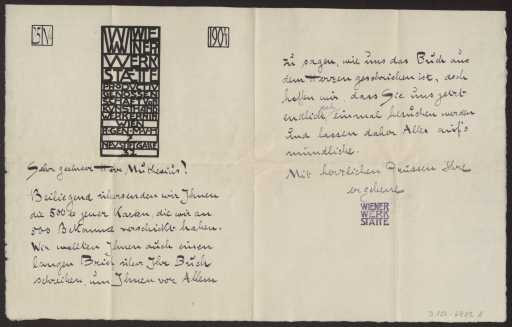 25 IV
1904
WIENER
WERK
STÆTTE
PRODUCTIV
GENOSSEN
SCHAFT VON
KUNSTHAND
WERKERN IN
WIEN
R. GEN. M. U. H.
7
NEUSTIFTGASSE
32
Sehr geehrter Herr Muthesius!
Beiliegend übersenden wir Ihnen
die 500te jener Karten, die wir an
500 Bekannte verschickt haben.
Wir wollten Ihnen auch einen
langen Brief über Ihr Buch
schreiben, um Ihnen vor Allem
zu sagen, wie uns das Buch aus
dem Herzen gesprochen ist, doch
hoffen wir, dass Sie uns jetzt
endlich auch einmal besuchen werden
und lassen daher Alles auf's
mündliche.
Mit herzlichen Grüssen Ihre
ergebene
WIENER
WERK
STÄTTE